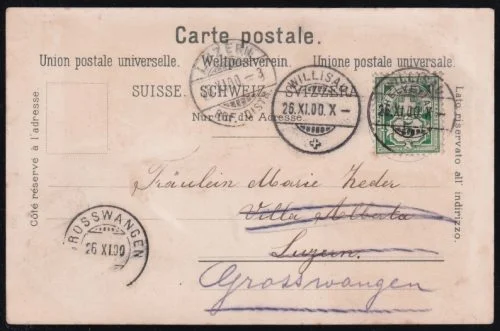 Carte postale.
Union postale universelle. Weltpostverein. Unione postale universale.
SUISSE. SCHWEIZ. SVIZZERA
Nur für die Adresse.
Côté réservé à l'adresse
Lato riservato all' indirizzo.
LUZERN
XI.00
WILLISAU
26.XI.00.X-
WILLISAU
26.XI.00
Fräulein Marie Zeder
Villa Alberta
Luzern.
Grosswangen
GROSSWANGEN
26 XI.00